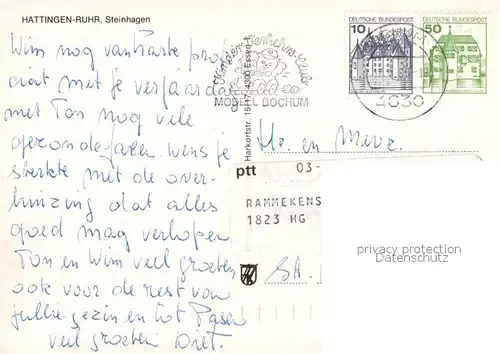 HATTINGEN-RUHR, Steinhagen
Wim nog van harte profi
ciat met je verjaardag
met Ton nog vele
gezonde jaren. wens je
sterkte met de over-
huizing dat alles
goed mag verlopen
Ton en Wim veel groeten
ook voor de rest van
jullie gezin en tot Pasen
veel groeten Driet.
Harkortstr. 15/17, 4300 Essen 1
MODELL BOCHUM
DEUTSCHE BUNDESPOST
10
DEUTSCHE BUNDESPOST
50
4630
Hr. en Mevr.
ptt 03-
RAMMEKENS
1823 HG
privacy protection
Datenschutz